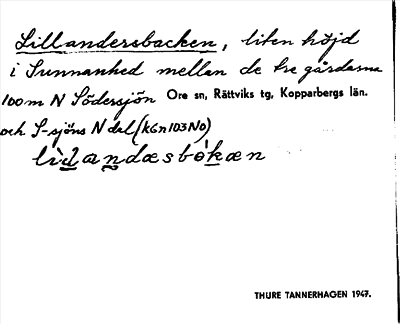 Lillandersbacken, liten höjd
i Sunnanhed mellan de tre gårdarna
100 m N Södersjön Ore sn, Rättviks tg, Kopparbergs län.
och S-sjöns N del (k6n103No)
THURE TANNERHAGEN 1947.